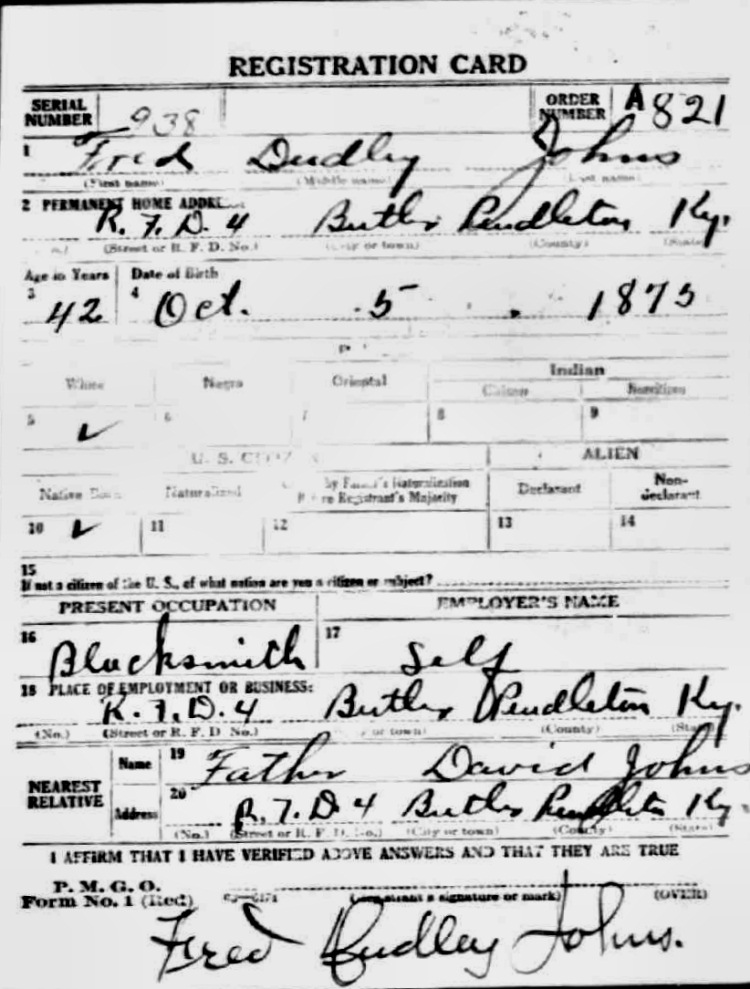 REGISTRATION CARD
SERIAL NUMBER 938 ORDER NUMBER A 821
1 Fred Dudley Johns
(First name) (Middle name) (Last name)
2 PERMANENT HOME ADDRE
R. F. D. 4 Butler Pendleton Ky.
(Street or R. F. D. No.) (City or town) (County) (State)
Age in Years Date of Birth
3 42 4 Oct. 5 1875
White Negro Oriental Indian
Citizen
5 ✓ 6 7 8 9
U. S. ALIEN
Native Born Naturalized by Father's Naturalization Registrant's Majority Declarant Non-declarant
10 ✓ 11 12 13 14
15
If not a citizen of the U. S., of what nation are you a citizen or subject?
PRESENT OCCUPATION EMPLOYER'S NAME
16 Blacksmith 17 Self
18 PLACE OF EMPLOYMENT OR BUSINESS:
R. F. D. 4 Butler Pendleton Ky.
(No.) (Street or R. F. D. No.) or town) (County) (Sta
NEAREST RELATIVE
Name 19 Father David Johns
Address 20 R. F. D 4 Butler Pendleton Ky.
(No.) (Street or R. F. D. No.) (City or town) (County) (State)
I AFFIRM THAT I HAVE VERIFIED ABOVE ANSWERS AND THAT THEY ARE TRUE
P. M. G. O.
Form No. 1 (Red) (Registrant's signature or mark) (OVER)
Fred Dudley Johns.